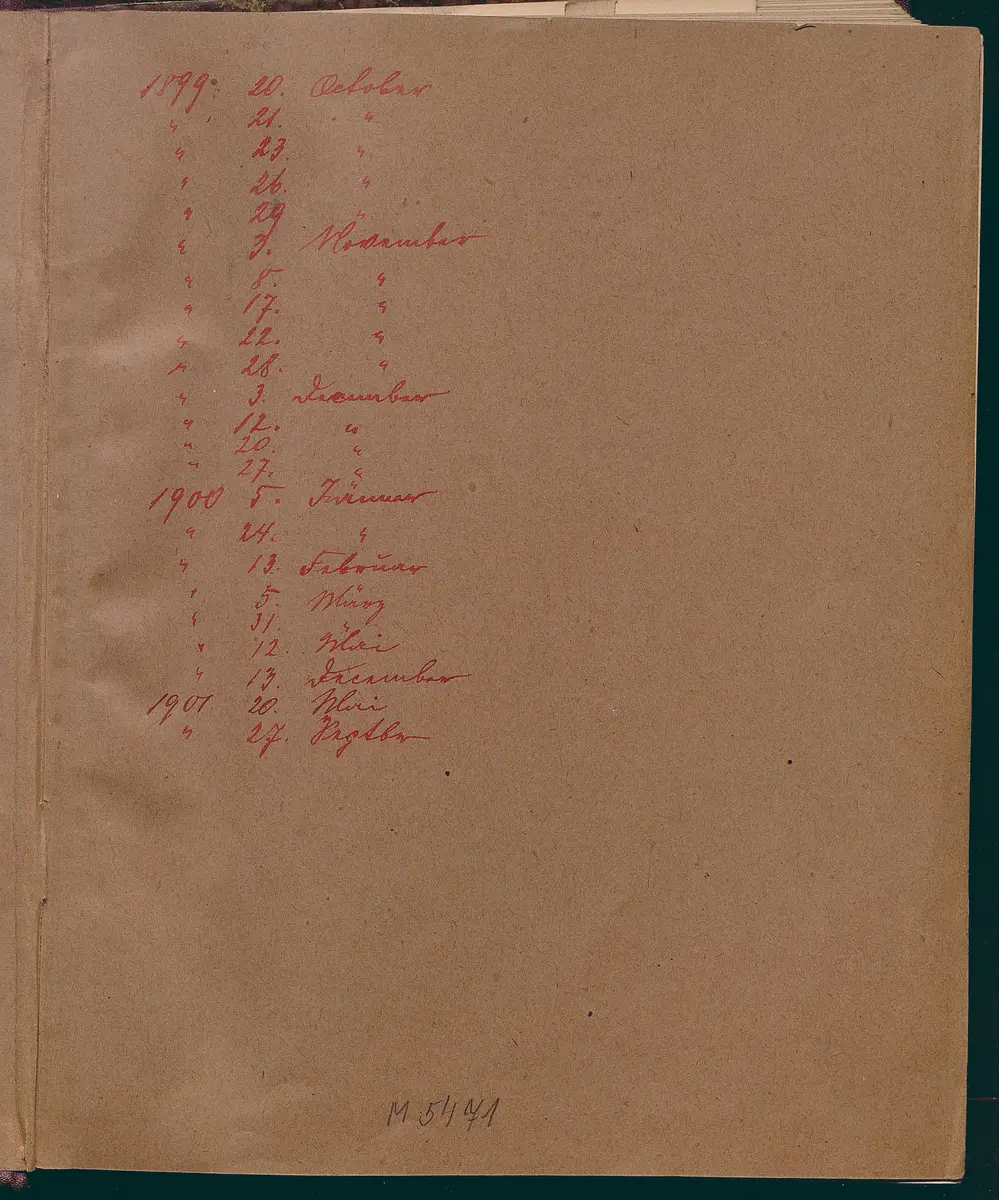 1899. 20. October
" 21. "
" 23. "
" 26. "
" 29 "
" 3. November
" 8. "
" 17. "
" 22. "
" 28. "
" 3. December
" 12. "
" 20. "
" 27. "
1900 5. Jänner
" 24. "
" 13. Februar
" 5. März
" 31. "
" 12. Mai
" 13. December
1901. 20. Mai
" 27. Septber
M 5471